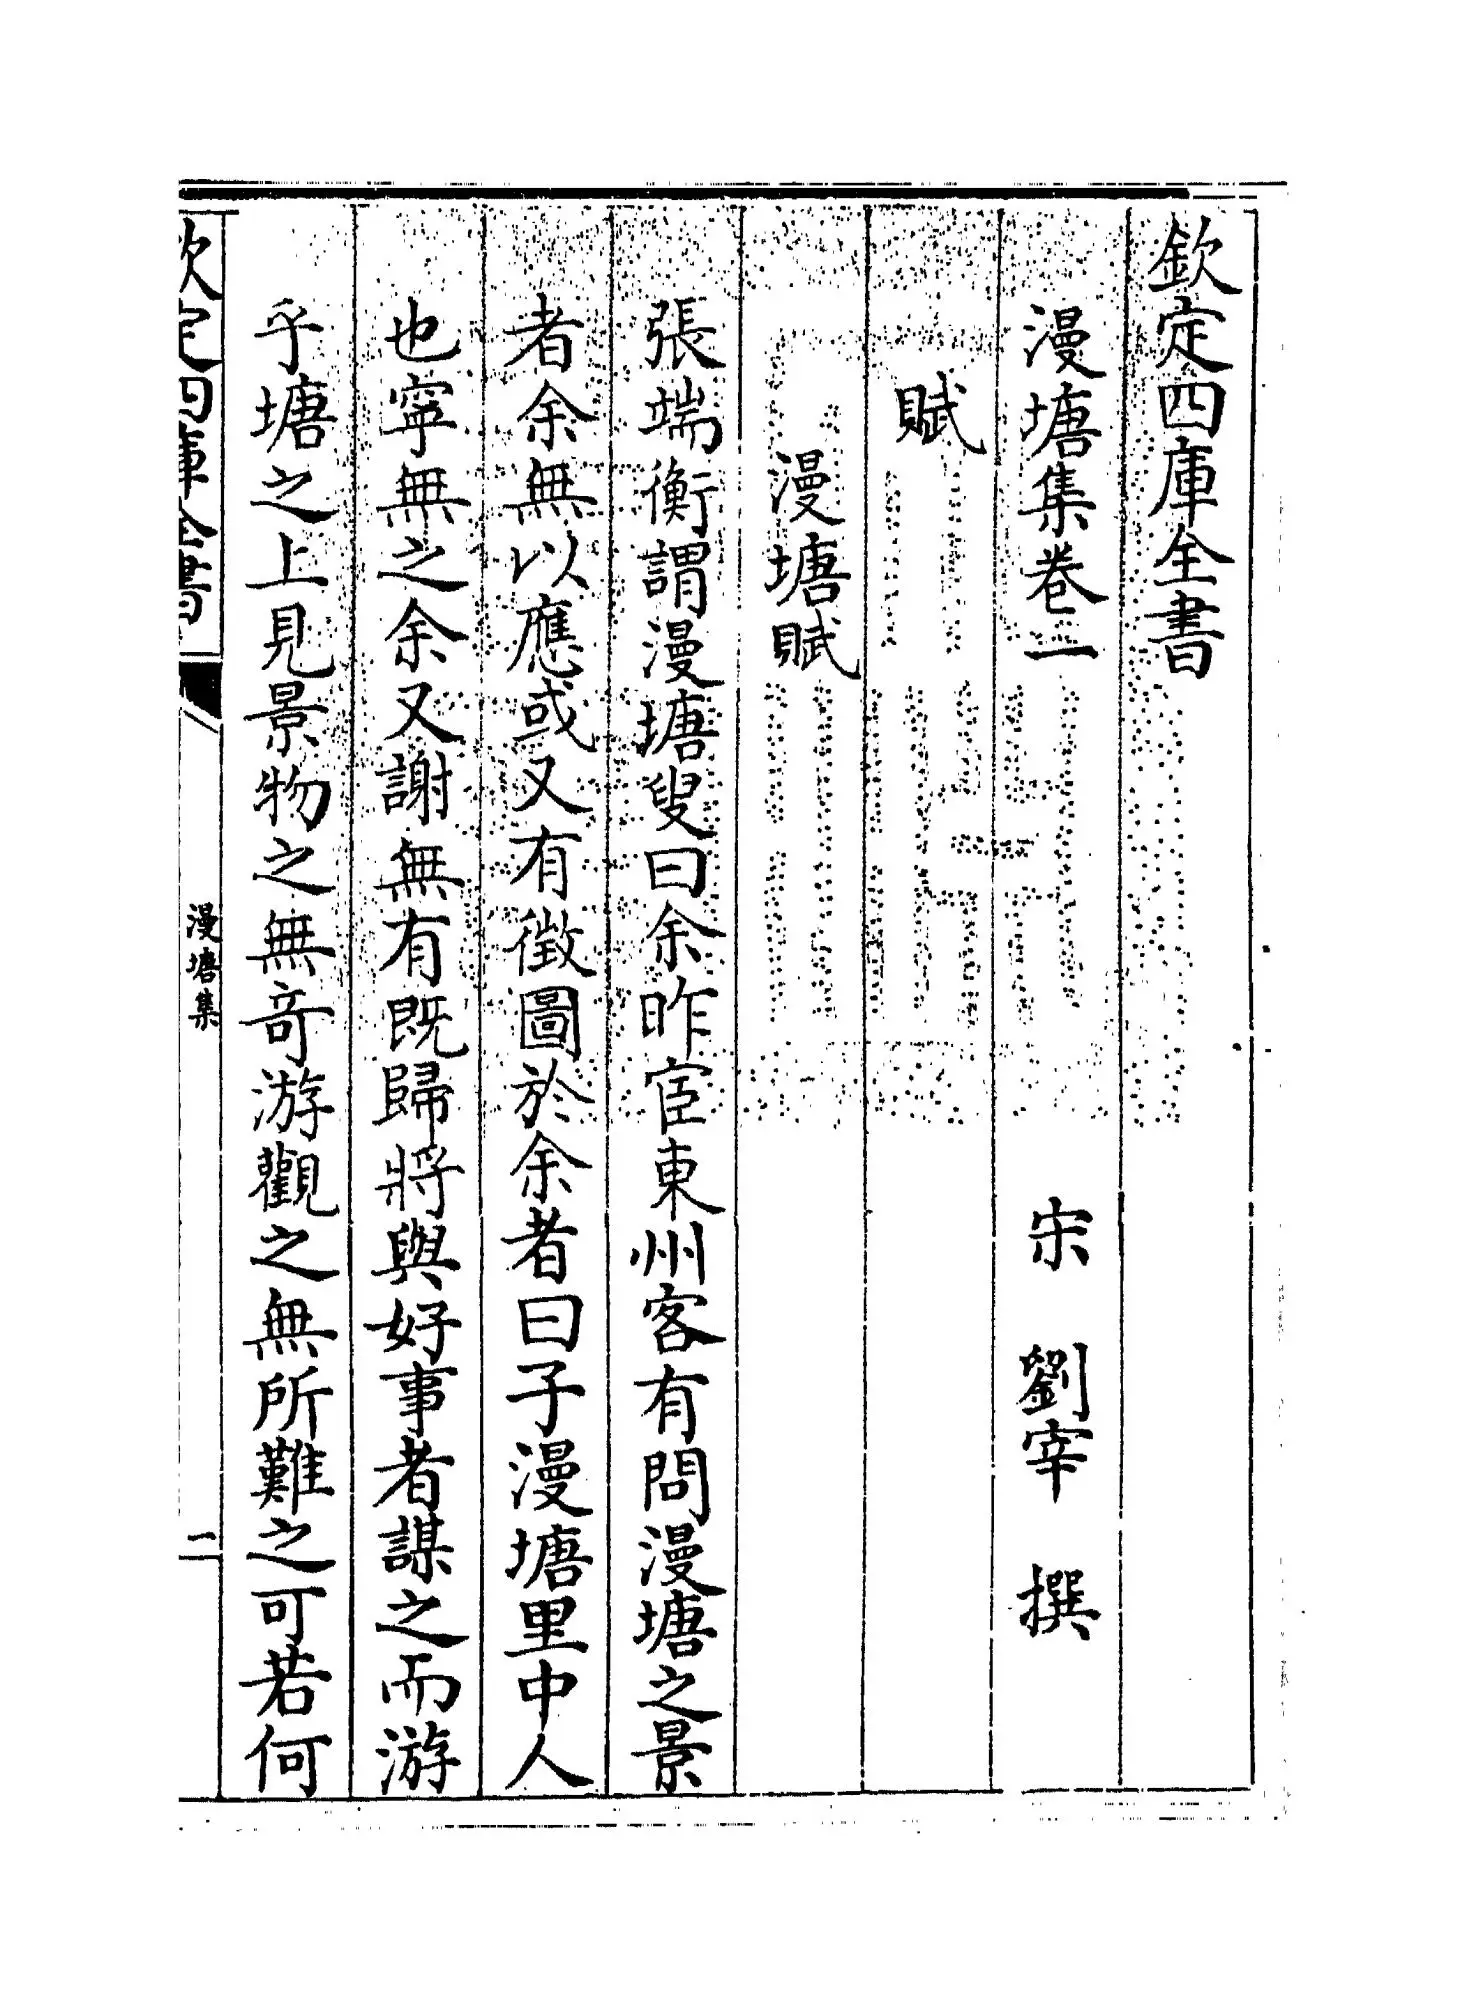 欽定四庫全書
漫塘集卷二
宋 劉宰 撰
賦
漫塘賦
張端衡謂漫塘叟曰余昨宦東州客有問漫塘之景
者余無以應或又有徵圖於余者曰子漫塘里中人
也寧無之余又謝無有既歸將與好事者謀之而游
乎塘之上見景物之無竒游觀之無所難之可若何
欽定四庫全書
漫塘集
二